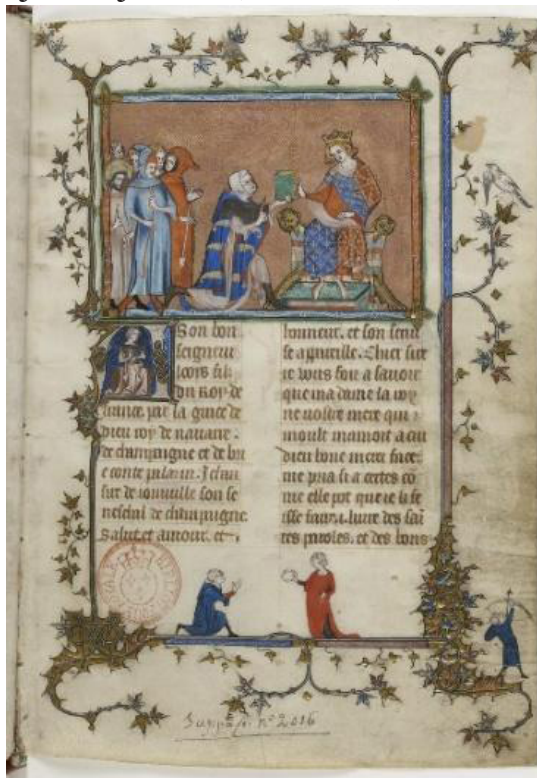 1
A son bon
seigneur
looys filz
du roy de
france par la grace de
dieu roy de navarre.
de champaigne et de bri
e conte palazin. Jehan
sire de ionville son se
neschal de champaigne.
Salut et amour. et
honneur. et son servi
se apareille. Chier sire
ie vous foiz a savoir
que ma dame la roy
ne vostre mere qui
moult mamoit a cui
dieu bone merci face.
me pria si a certes co
me elle pot que ie li fe
isse faire .i. livre des sai
tes paroles. et des bons
Suppl. fr. nº 2016